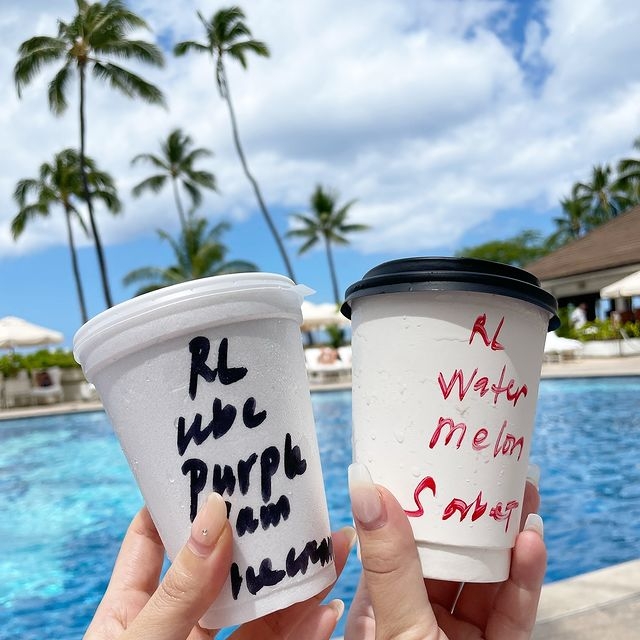 RL
ube
purple
Yam
Ice cream
RL
Water
melon
Sorbet